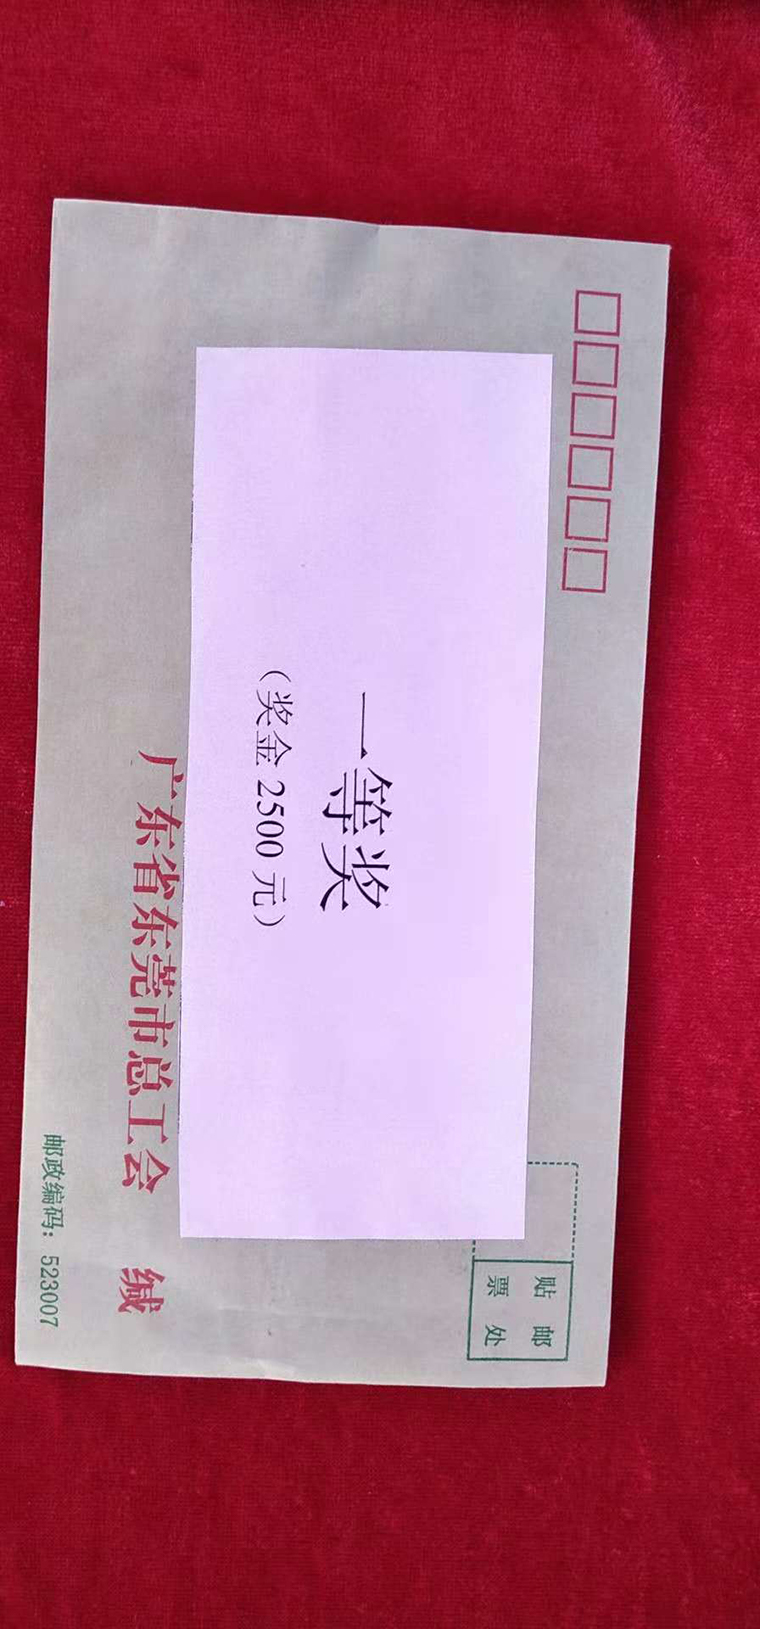 贴邮
票处
一等奖
（奖金 2500 元）
广东省东莞市总工会 缄
邮政编码：523007